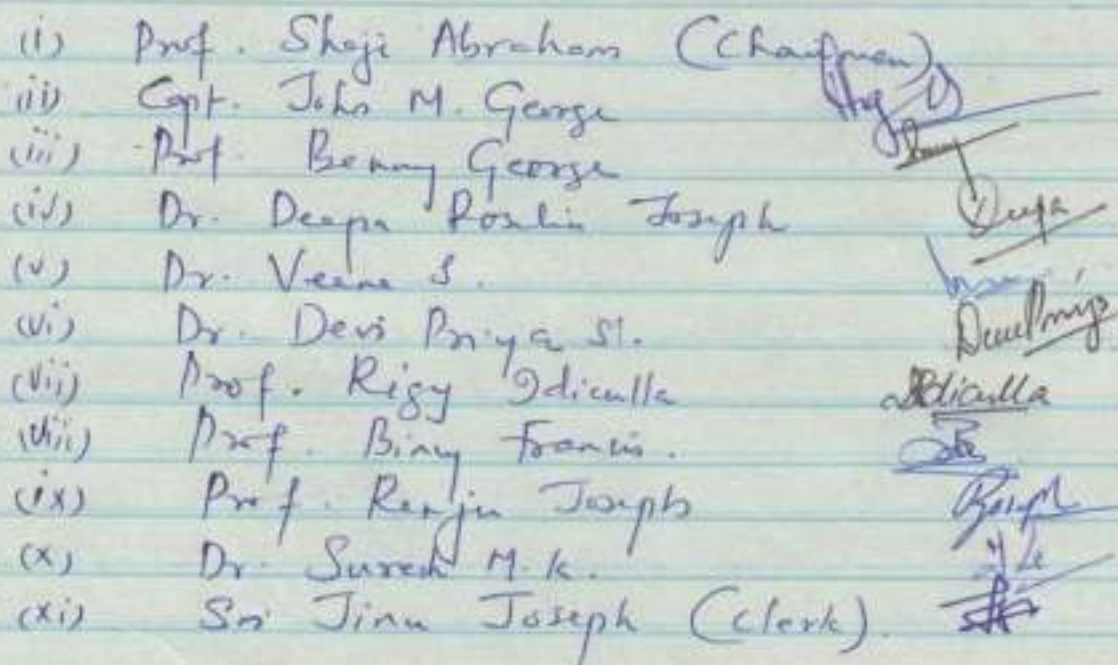 (i) Prof. Shaji Abraham (Chairman)
(ii) Capt. John M. George
(iii) Prof. Benny George
(iv) Dr. Deepa Roslin Joseph Deepa
(v) Dr. Veena S.
(vi) Dr. Devi Priya M. DeviPriya
(vii) Prof. Rigy Idiculla Idiculla
(viii) Prof. Bincy Francis.
(ix) Prof. Renju Joseph
(x) Dr. Suresh M.K.
(xi) Sri Jinu Joseph (Clerk).